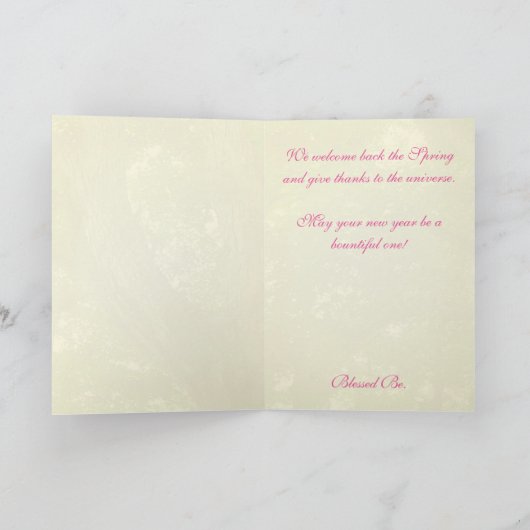 We welcome back the Spring
and give thanks to the universe.
May your new year be a
bountiful one!
Blessed Be.